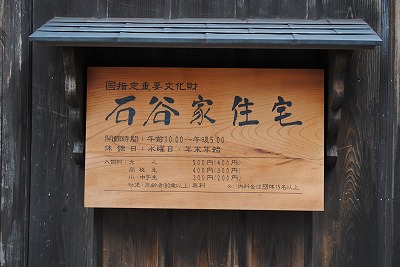 国指定重要文化財
石谷家住宅
開館時間：午前10:00～午後5:00
休館日：水曜日：年末年始
入館料：大人 500円(400円)
高校生 400円(300円)
小・中学生 300円(200円)
幼児・高齢者(80歳以上)無料 ※( )内料金は団体15名以上